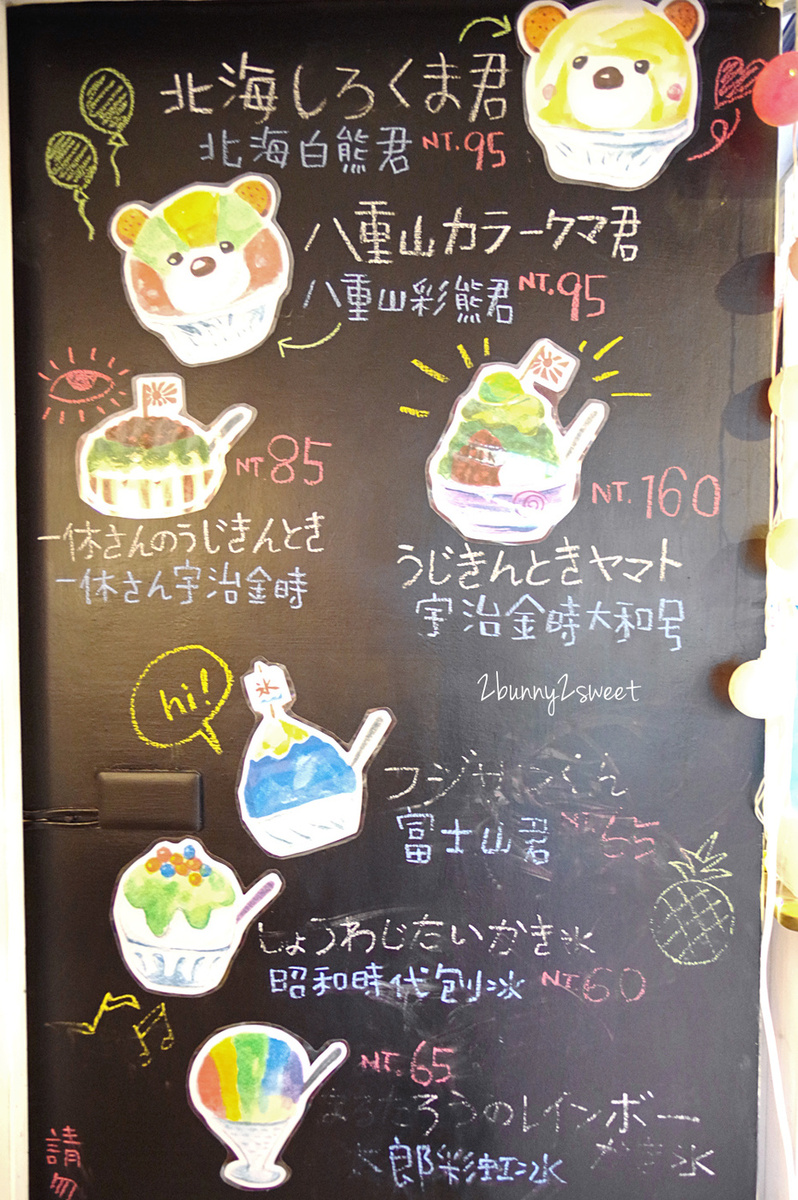 北海しろくま君
北海白熊君 NT.95
八重山カラークマ君
八重山彩熊君 NT.95
NT.85
一休さんのうじきんとき
一休さん宇治金時
NT.160
うじきんときヤマト
宇治金時大和号
2bunny2sweet
hi!
氷
フジサンくん
富士山君 NT.55
しょうわじだいかき氷
昭和時代刨冰 NT60
NT.65
ろうのレインボー
郎彩虹冰
氷
請勿